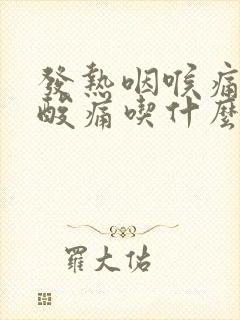 發熱咽喉痛
酸痛喫什麼
羅大佑